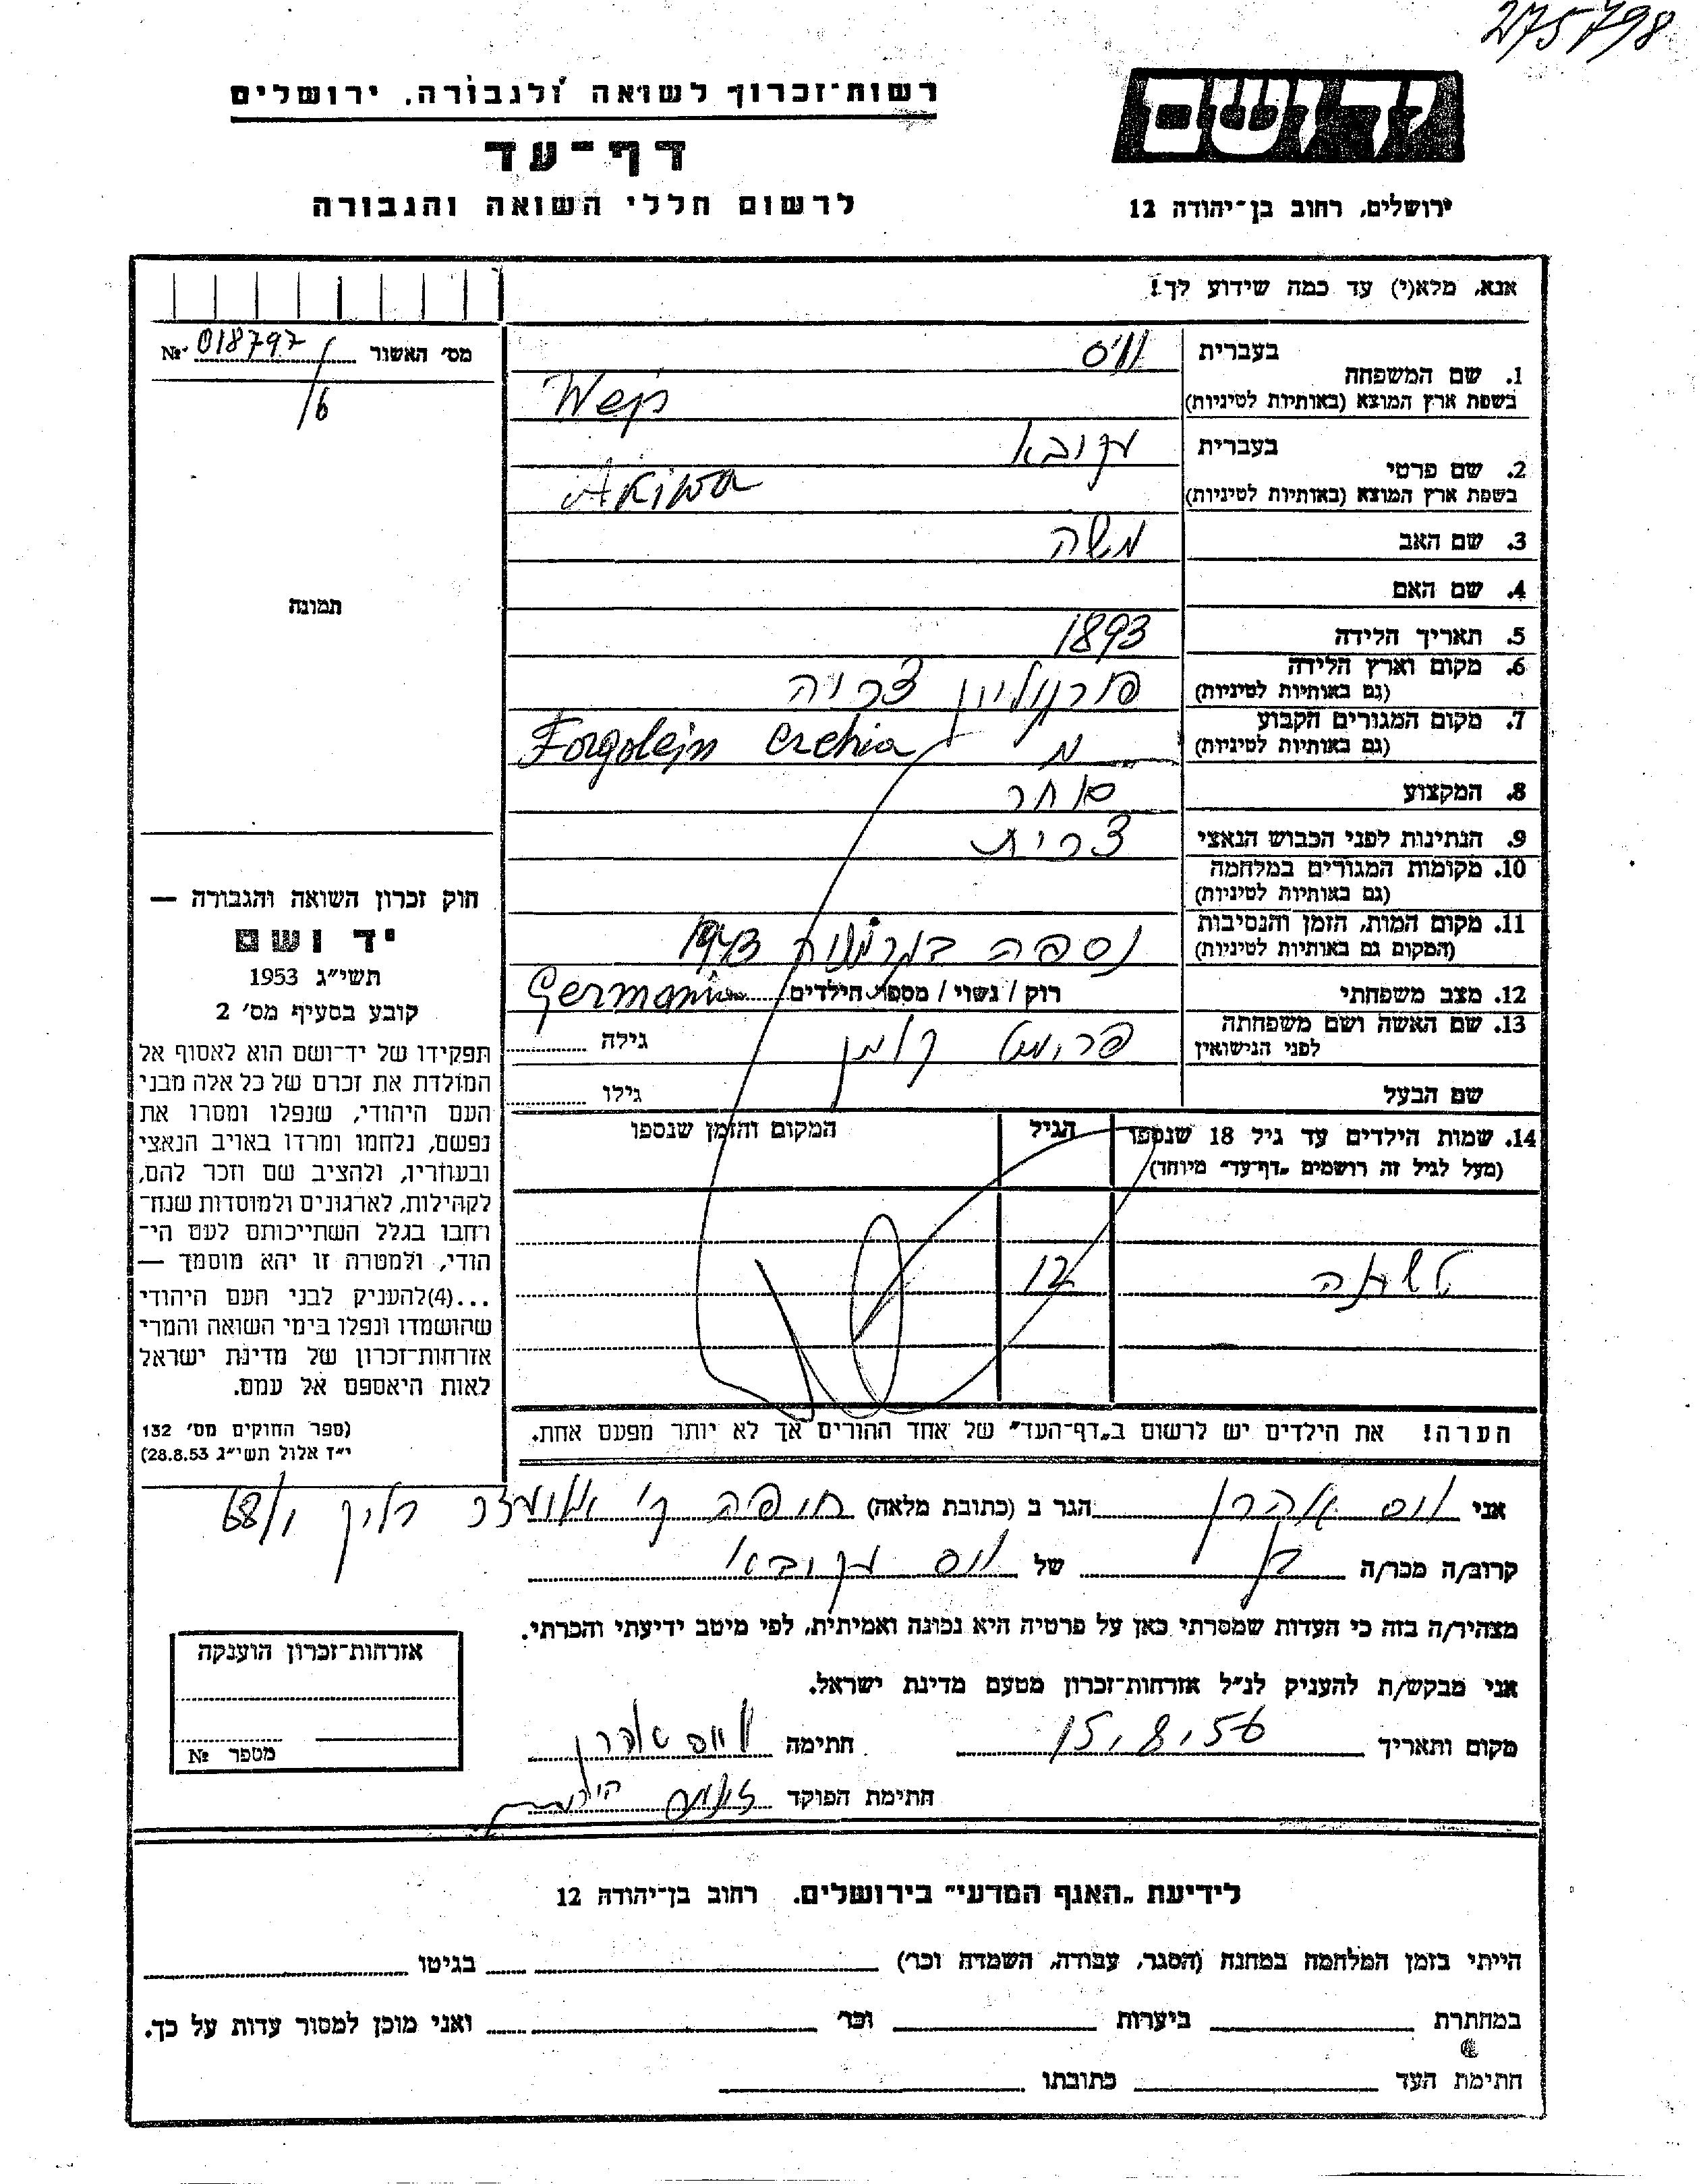 275798
רשות־זכרון לשואה ולגבורה, ירושלים
דף־עד
לרשום חללי השואה והגבורה
יד ושם
ירושלים, רחוב בן־יהודה 12
אנא, מלא(י) עד כמה שידוע לך!
מס׳ האשור № 018797/6
1. שם המשפחה בעברית ווייס
בשפת ארץ המוצא (באותיות לטיניות) Wejs
2. שם פרטי בעברית עקובא
בשפת ארץ המוצא (באותיות לטיניות) Akiwa
3. שם האב משה
4. שם האם
5. תאריך הלידה 1893
6. מקום וארץ הלידה
(גם באותיות לטיניות)
7. מקום המגורים הקבוע
(גם באותיות לטיניות) Forgolejn Czehia
8. המקצוע סוחר
9. הנתינות לפני הכבוש הנאצי צכית
10. מקומות המגורים במלחמה
(גם באותיות לטיניות)
11. מקום המות, הזמן והנסיבות נספה בגרמניה 1943
(המקום גם באותיות לטיניות)
12. מצב משפחתי רוק / נשוי / מספר הילדים Germania
13. שם האשה ושם משפחתה
לפני הנישואין גילה
שם הבעל גילו
14. שמות הילדים עד גיל 18 שנספו הגיל המקום והזמן שנספו
(מעל לגיל זה רושמים „דף־עד״ מיוחד)
12
הערה! את הילדים יש לרשום ב„דף־העד״ של אחד ההורים אך לא יותר מפעם אחת.
תמונה
חוק זכרון השואה והגבורה —
יד ושם
תשי״ג 1953
קובע בסעיף מס׳ 2
תפקידו של יד־ושם הוא לאסוף אל
המולדת את זכרם של כל אלה מבני
העם היהודי, שנפלו ומסרו את
נפשם, נלחמו ומרדו באויב הנאצי
ובעוזריו, ולהציב שם וזכר להם,
לקהילות, לארגונים ולמוסדות שנח־
רחבו בגלל השתייכותם לעם הי־
הודי, ולמטרה זו יהא מוסמך —
...(4) להעניק לבני העם היהודי
שהושמדו ונפלו בימי השואה והמרי
אזרחות־זכרון של מדינת ישראל
לאות היאספם אל עמם.
(ספר החוקים מס׳ 132
י״ז אלול תשי״ג 28.8.53)
אני ווס אהרן הגר ב (כתובת מלאה) חיפה ק׳
קרוב/ה מכר/ה בן של ווס עקובא
מצהיר/ה בזה כי העדות שמסרתי כאן על פרטיה היא נכונה ואמיתית, לפי מיטב ידיעתי והכרתי.
אני מבקש/ת להעניק לנ״ל אזרחות־זכרון מטעם מדינת ישראל.
מקום ותאריך 15.8.56 חתימה ווס אהרן
חתימת הפוקד
אזרחות־זכרון הוענקה
מספר №
לידיעת „האגף המדעי״ בירושלים. רחוב בן־יהודה 12
הייתי בזמן המלחמה במחנה (הסגר, עבודה, השמדה וכו׳) בגיטו
במחתרת ביערות וכו׳ ואני מוכן למסור עדות על כך.
חתימת העד כתובתו